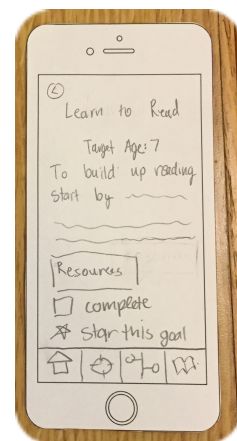 Learn to Read
Target Age: 7
To build up reading
start by
Resources
complete
star this goal